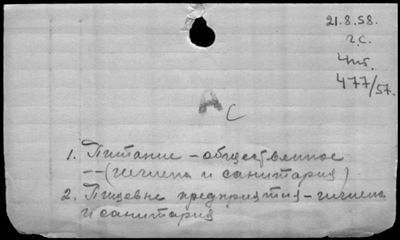 21.8.58.
г.с.
Чит.
477/57.
А с
1. Питание - общественное
-- (гигиена и санитария)
2. Пищевые предприятия - гигиена
и санитария